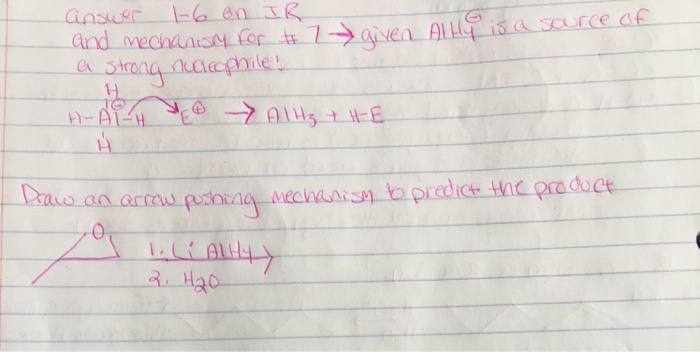 answer 1-6 on IR
and mechanism for # 7 → given AlH4⊖ is a source of
a strong nucleophile!
H
H-Al⊖-H E⊕ → AlH3 + H-E
H
Draw an arrow pushing mechanism to predict the product
O 1. LiAlH4
2. H2O